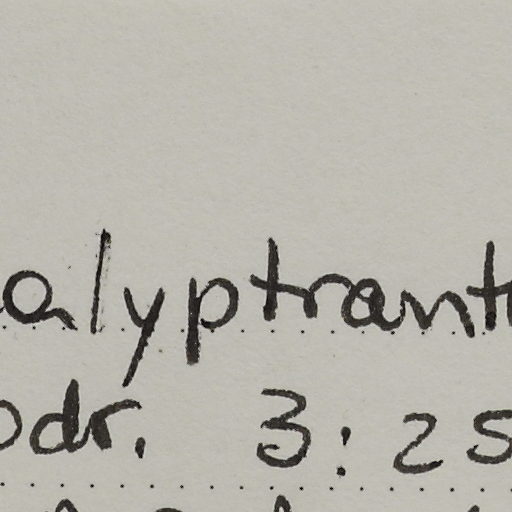 alyptrant
odr. 3:25